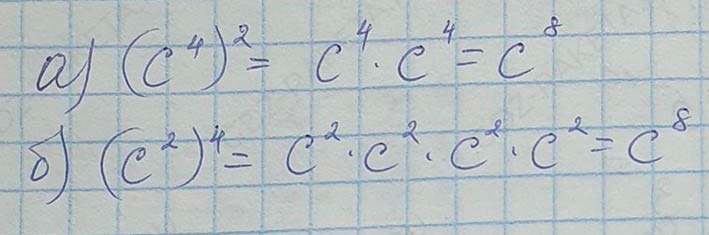 а) (c⁴)² = c⁴ · c⁴ = c⁸
б) (c²)⁴ = c² · c² · c² · c² = c⁸